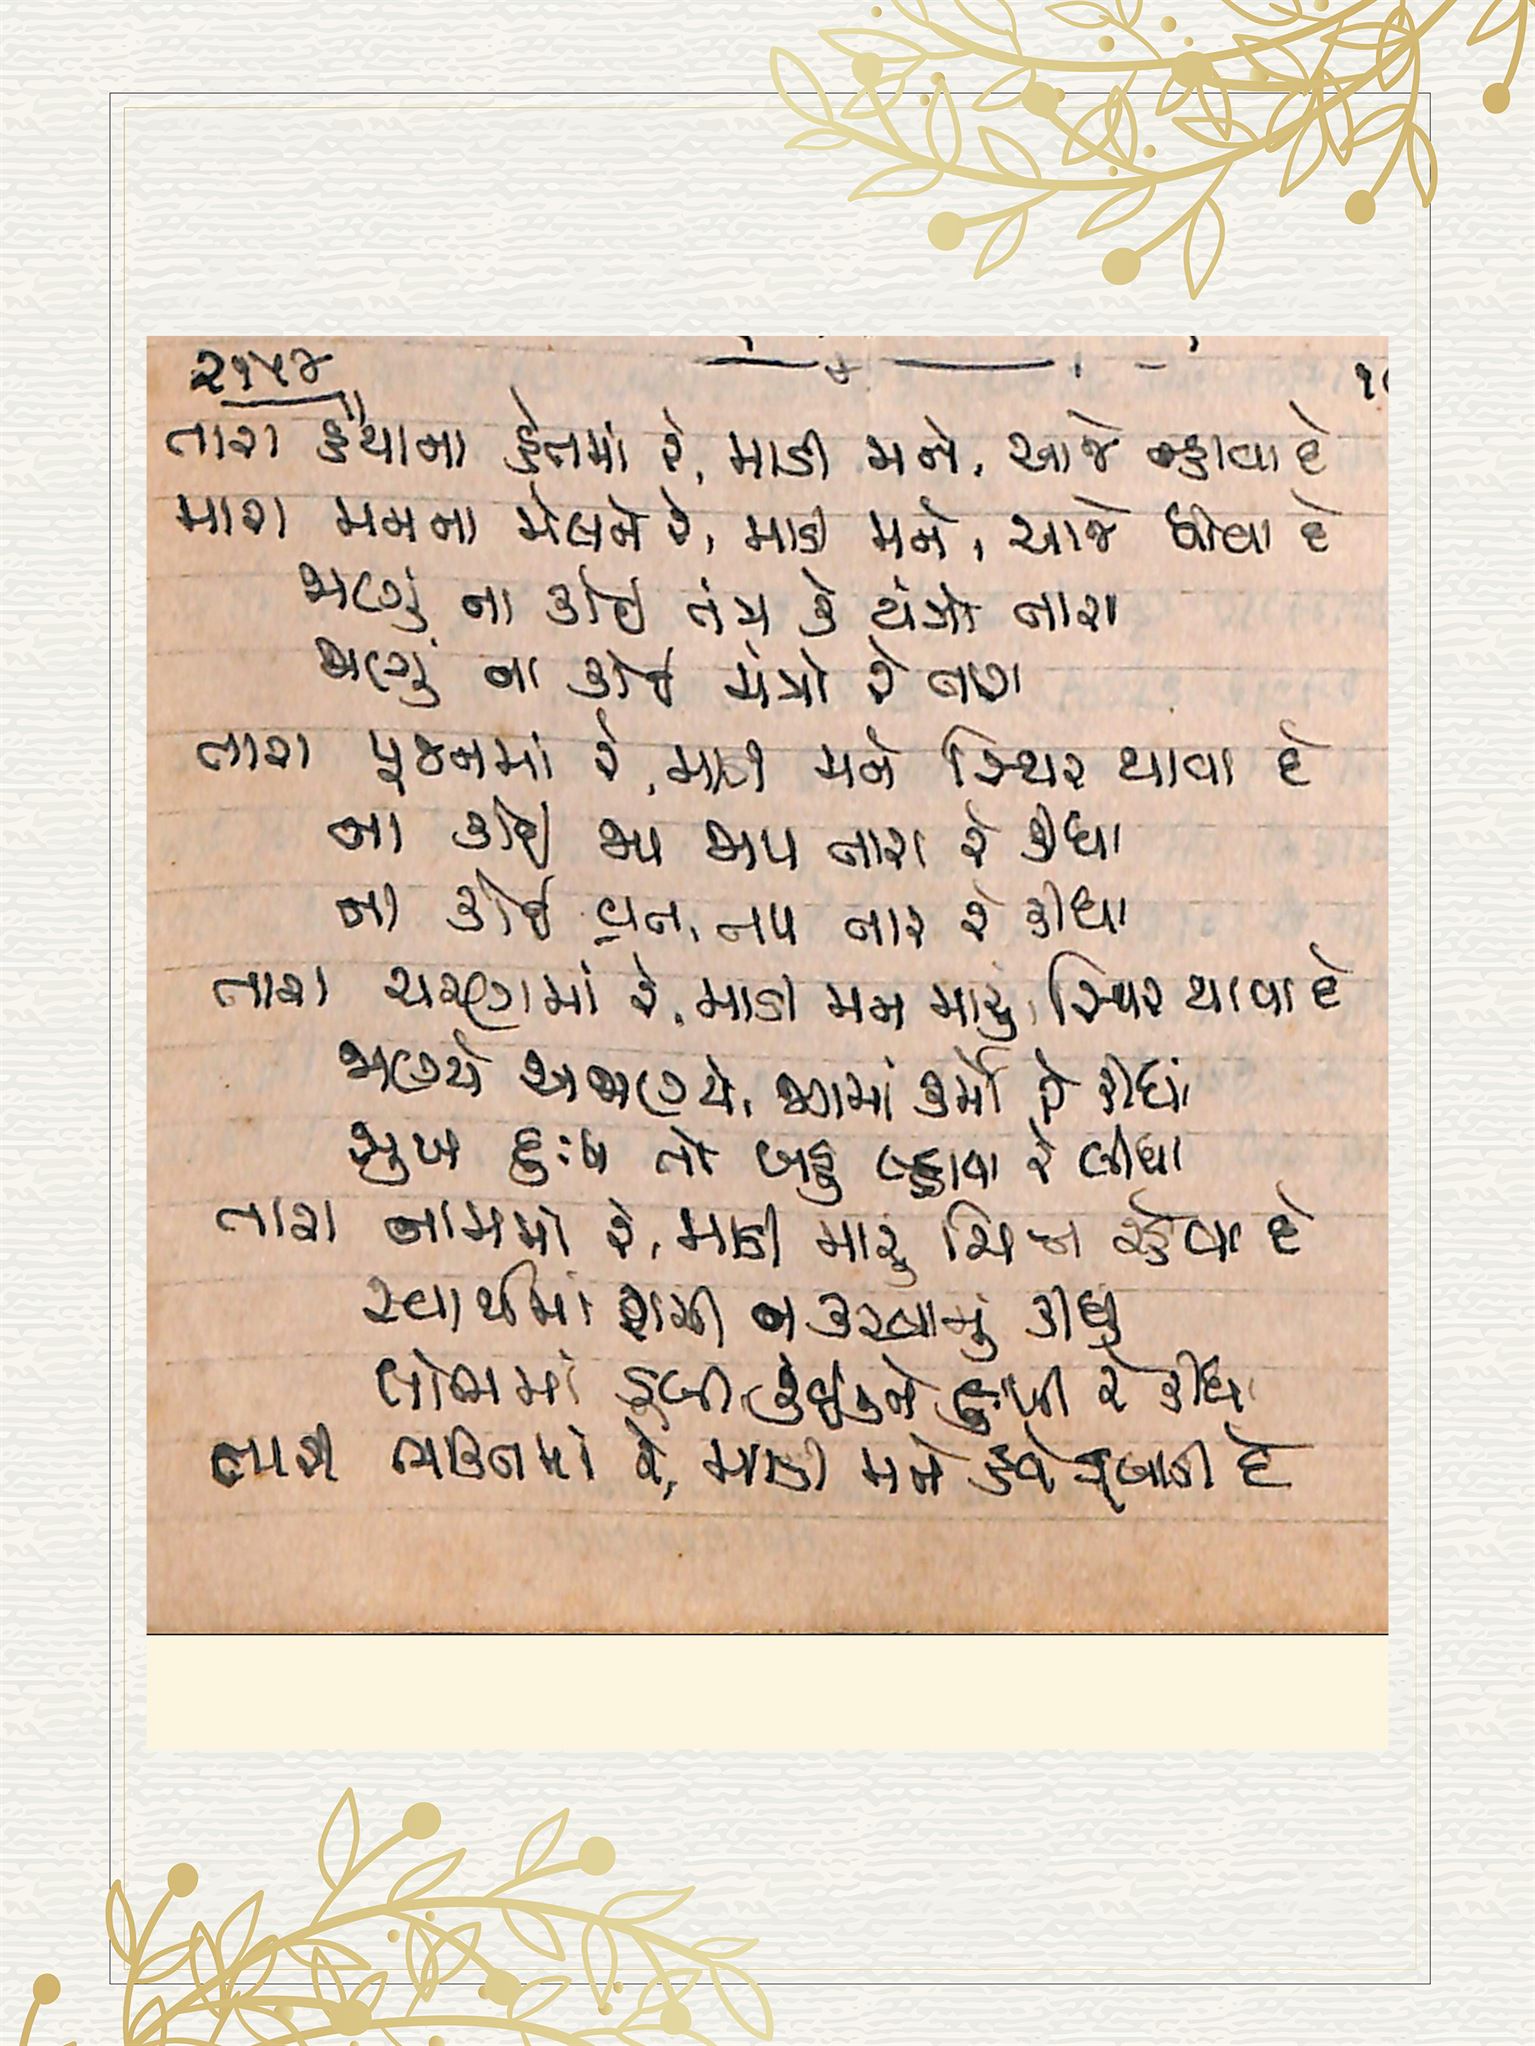 ૨૧૫૪
તારા હૈયાના હેતમાં રે, માડી મને, આજે ન્હાવા દે
મારા મનના મેલને રે, માડી મને, આજે ધોવા દે
જાણું ના કોઈ તંત્ર કે યંત્રો તારા
જાણું ના કોઈ મંત્રો રે તારા
તારા પૂજનમાં રે, માડી મને સ્થિર થાવા દે
ના કોઈ જપ જાપ તારા રે કીધા
ના કોઈ વ્રત, તપ તારા રે કીધા
તારા ચરણમાં રે, માડી મન મારું, સ્થિર થાવા દે
જાણ્યે અજાણ્યે, કર્મો રે કીધાં
સુખ દુઃખ તો બહુ લ્હાવા રે લીધા
તારા નામમાં રે, માડી મારું ચિત્ત રહેવા દે
સ્વાર્થમાં રાચી ન કરવાનું કીધું
લોભમાં ડૂબી, કંઈકને દુઃખી રે કીધા
તારી ભક્તિમાં રે, માડી મને હવે ડૂબાડી દે